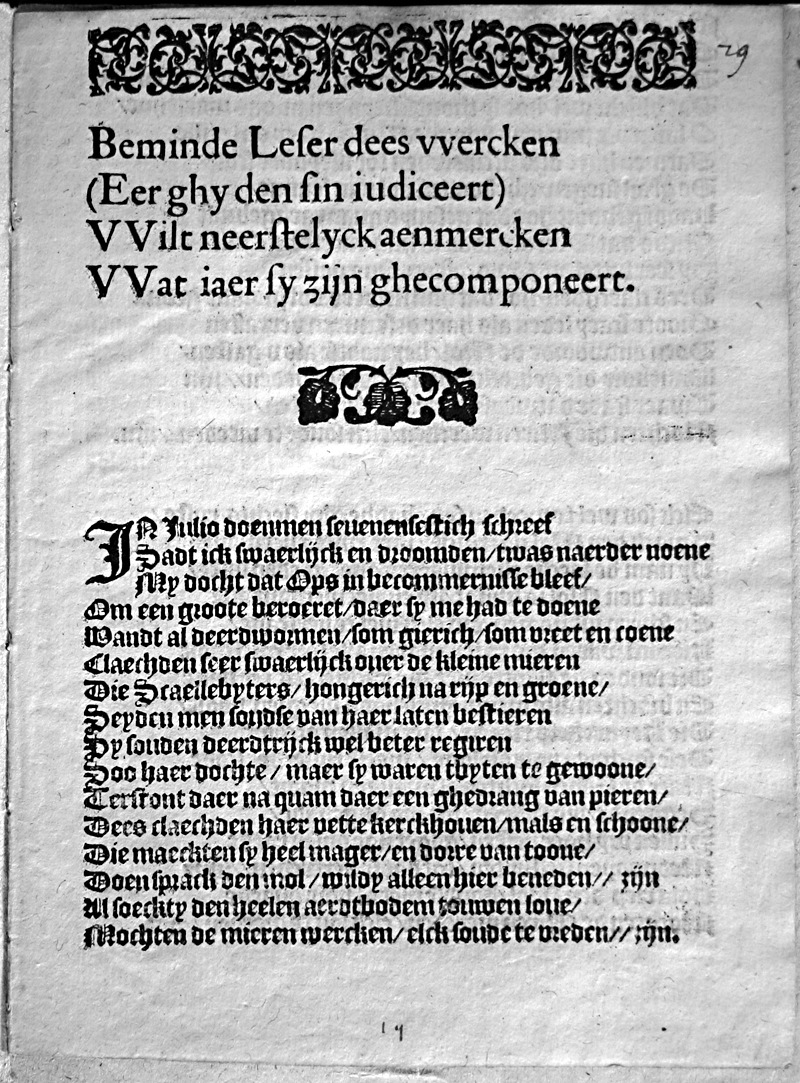 29
Beminde Leſer dees vvercken
(Eer ghy den ſin iudiceert)
VVilt neerſtelyck aenmercken
VVat iaer ſy zijn ghecomponeert.
IN Julio doenmen ſeuenenſeſtich ſchreef
Sadt ick ſwaerlijck en droomden/twas naerder noene
My docht dat Ops in becommerniſſe bleef/
Om een groote beroeret/daer ſy me had te doene
Wandt al deerdwormen/ſom gierich/ſom vreet en coene
Claechden ſeer ſwaerlijck ouer de kleine mieren
Die Scaellebyters/hongerich na rijp en groene/
Seyden men ſoudſe van haer laten beſtieren
Sy ſouden deerdtrijck wel beter regiren
Soo haer dochte/maer ſy waren tbyten te gewoone/
Terſtont daer na quam daer een ghedrang van pieren/
Dees claechden haer vette kerckhouen/mals en ſchoone/
Die maeckten ſy heel mager/en dorre van toone/
Doen ſprack den mol/wildy alleen hier beneden// zijn
Al ſoeckty den heelen aerdtbodem touwen loue/
Mochten de mieren wercken/elck ſoude te vreden// zijn.